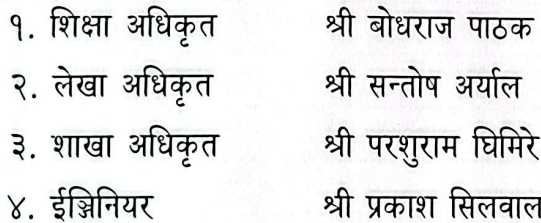 १. शिक्षा अधिकृत श्री बोधराज पाठक
२. लेखा अधिकृत श्री सन्तोष अर्याल
३. शाखा अधिकृत श्री परशुराम घिमिरे
४. ईञ्जिनियर श्री प्रकाश सिलवाल